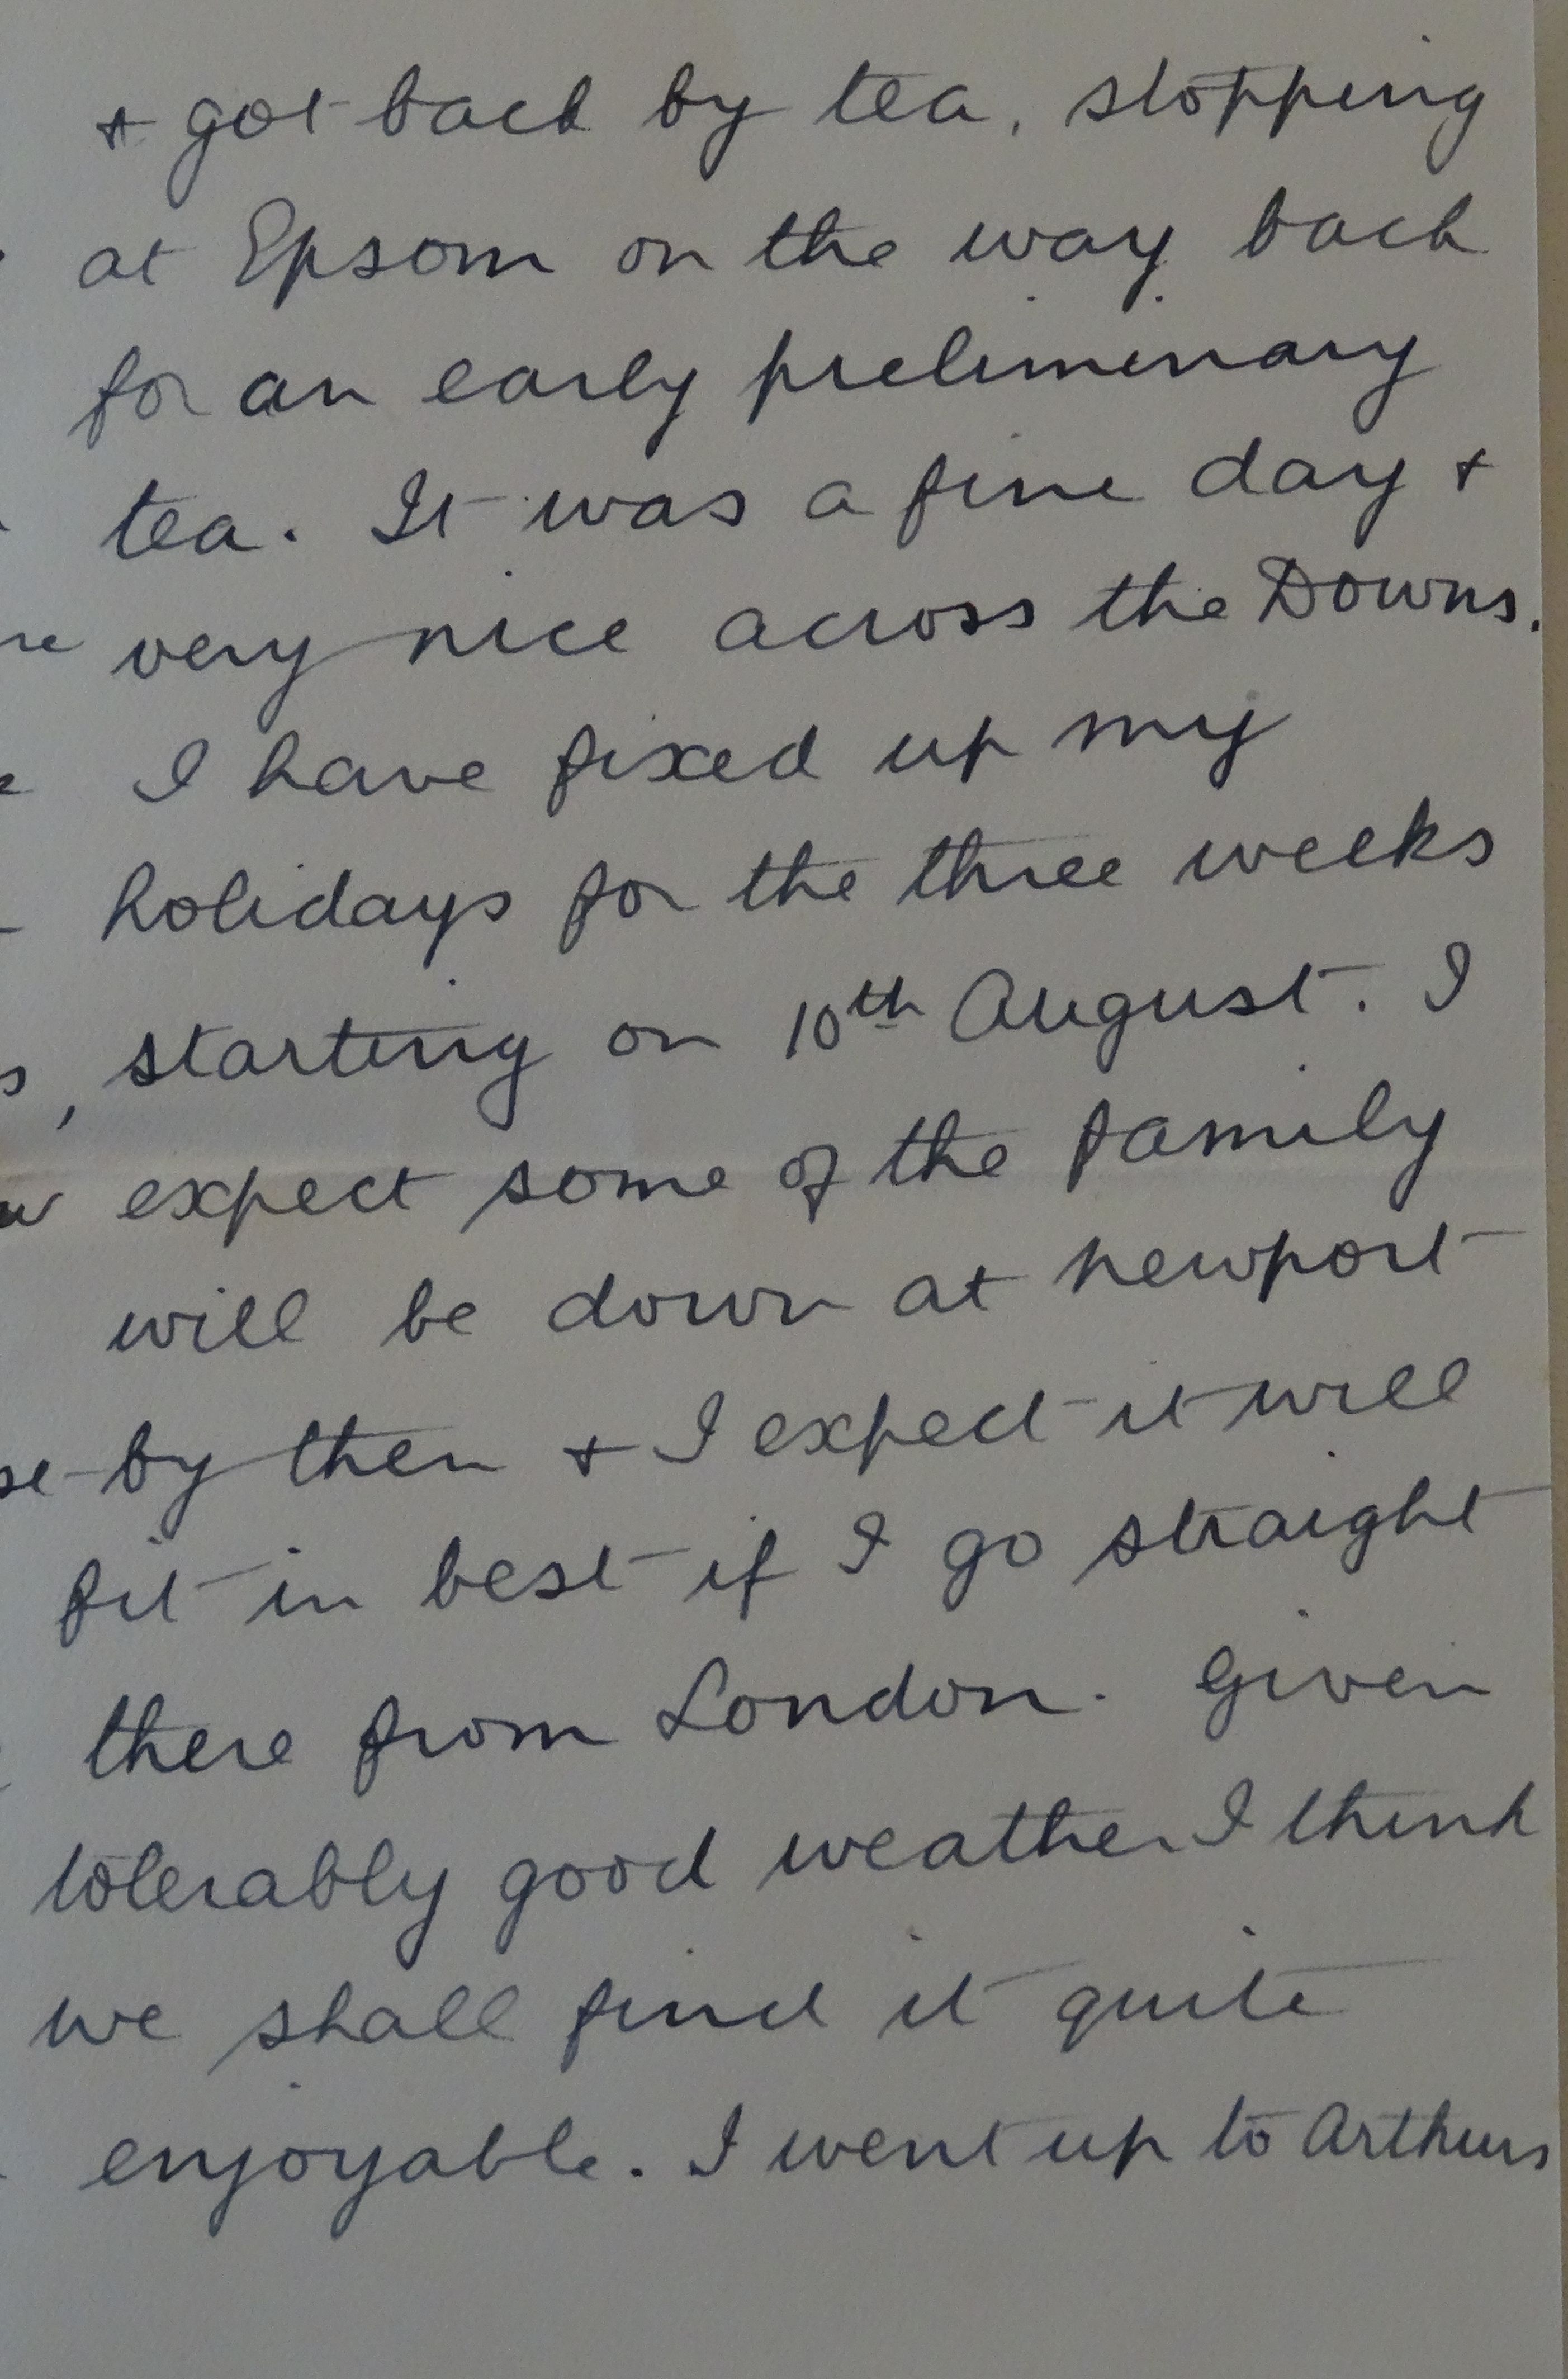 + got back by tea, stopping
at Epsom on the way back
for an early preliminary
tea. It was a fine day +
very nice across the Downs.
I have fixed up my
holidays for the three weeks
starting on 10th August. I
expect some of the family
will be down at Newport
by then + I expect it will
fit in best if I go straight
there from London. Given
tolerably good weather I think
we shall find it quite
enjoyable. I went up to Arthurs